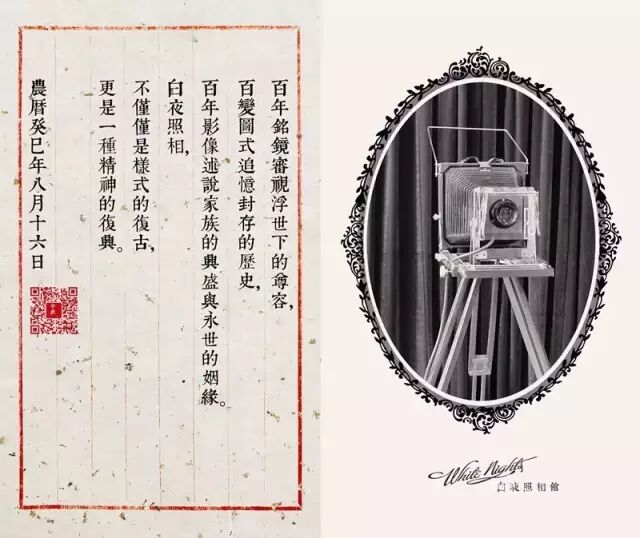 百年銘鏡審視浮世下的尊容，
百變圖式追憶封存的歷史，
百年影像述說家族的興盛與永世的姻緣。
白夜照相，
不僅僅是樣式的復古，
更是一種精神的復興。
農曆癸巳年八月十六日
White Nights
白夜照相館